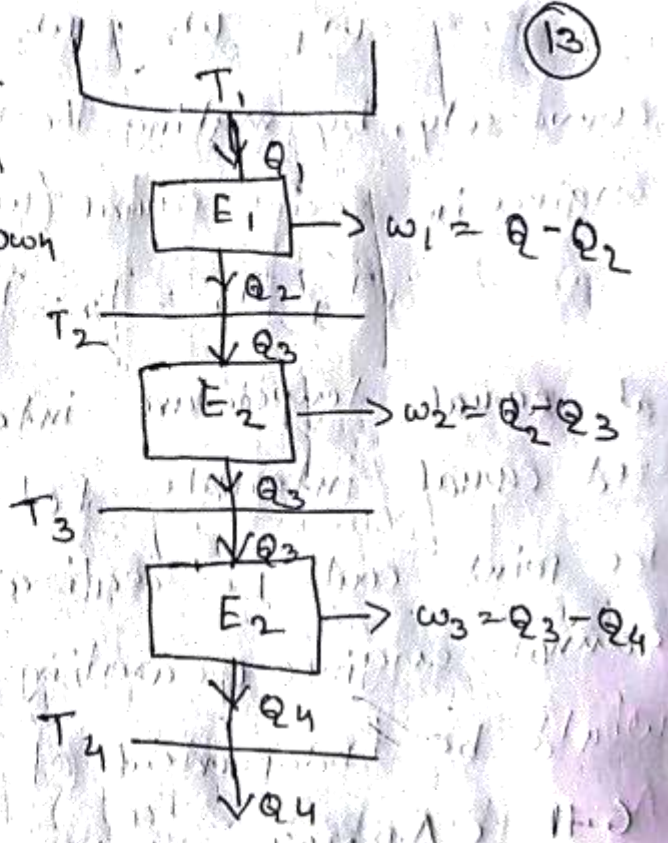 13
T1
Q1
E1
w1 = Q - Q2
own
Q2
T2
Q3
E2
w2 = Q2 - Q3
Q3
T3
Q3
E2
w3 = Q3 - Q4
Q4
T4
Q4